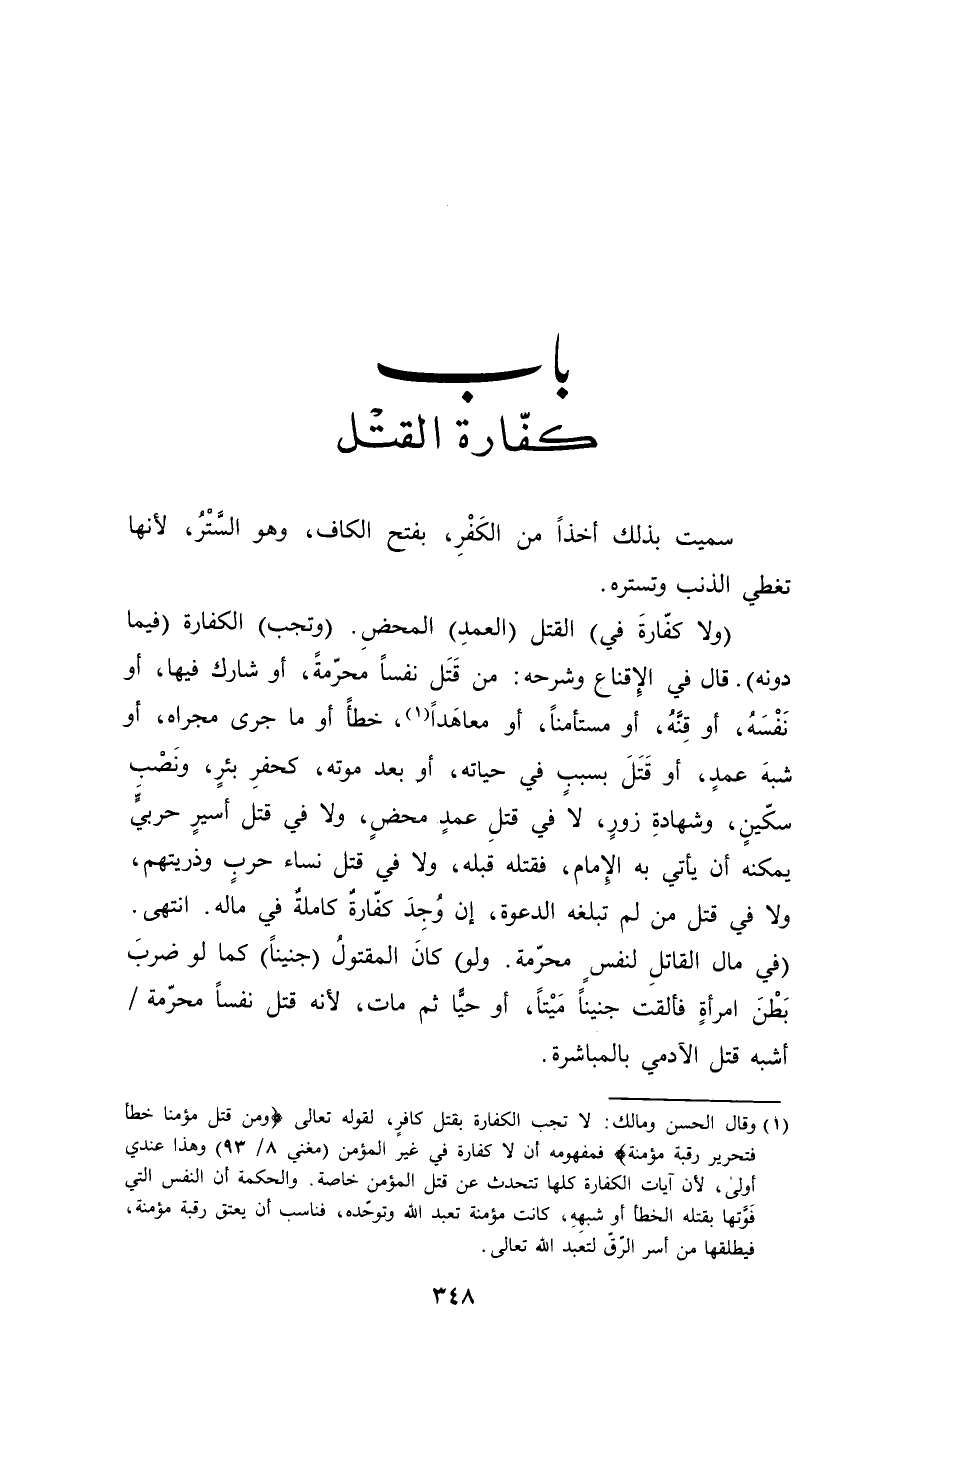 باب
كفّارة القتْل
سميت بذلك أخذاً من الكَفْرِ، بفتح الكاف، وهو السَّتْرُ، لأنها
تغطي الذنب وتستره.
(ولا كفّارةَ في) القتل (العمدِ) المحضِ. (وتجب) الكفارة (فيما
دونه). قال في الإِقناع وشرحه: من قَتَل نفساً محرّمةً، أو شارك فيها، أو
نَفْسَهُ، أو قِنَّهُ، أو مستأمناً، أو معاهَداً(١)، خطأً أو ما جرى مجراه، أو
شبهَ عمدٍ، أو قَتَلَ بسببٍ في حياته، أو بعد موته، كحفرِ بئرٍ، ونَصْبِ
سكّينٍ، وشهادةِ زورٍ، لا في قتلِ عمدٍ محضٍ، ولا في قتل أسيرٍ حربيٍّ
يمكنه أن يأتي به الإِمام، فقتله قبله، ولا في قتل نساء حربٍ وذريتهم،
ولا في قتل من لم تبلغه الدعوة، إن وُجِدَ كفّارةٌ كاملةٌ في ماله. انتهى.
(في مال القاتلِ لنفسٍ محرّمة. ولو) كانَ المقتولُ (جنيناً) كما لو ضربَ
بَطْنَ امرأةٍ فألقت جنيناً مَيْتاً، أو حيًّا ثم مات، لأنه قتل نفساً محرّمة /
أشبه قتل الآدمي بالمباشرة.
(١) وقال الحسن ومالك: لا تجب الكفارة بقتل كافرٍ، لقوله تعالى ﴿ومن قتل مؤمنا خطأ
فتحرير رقبة مؤمنة﴾ فمفهومه أن لا كفارة في غير المؤمن (مغني ٨/ ٩٣) وهذا عندي
أولىٰ، لأن آيات الكفارة كلها تتحدث عن قتل المؤمن خاصة. والحكمة أن النفس التي
فَوَّتها بقتله الخطأ أو شبههِ، كانت مؤمنة تعبد الله وتوحّده، فناسب أن يعتق رقبة مؤمنة،
فيطلقها من أسر الرّقّ لتعبد الله تعالى.
٣٤٨